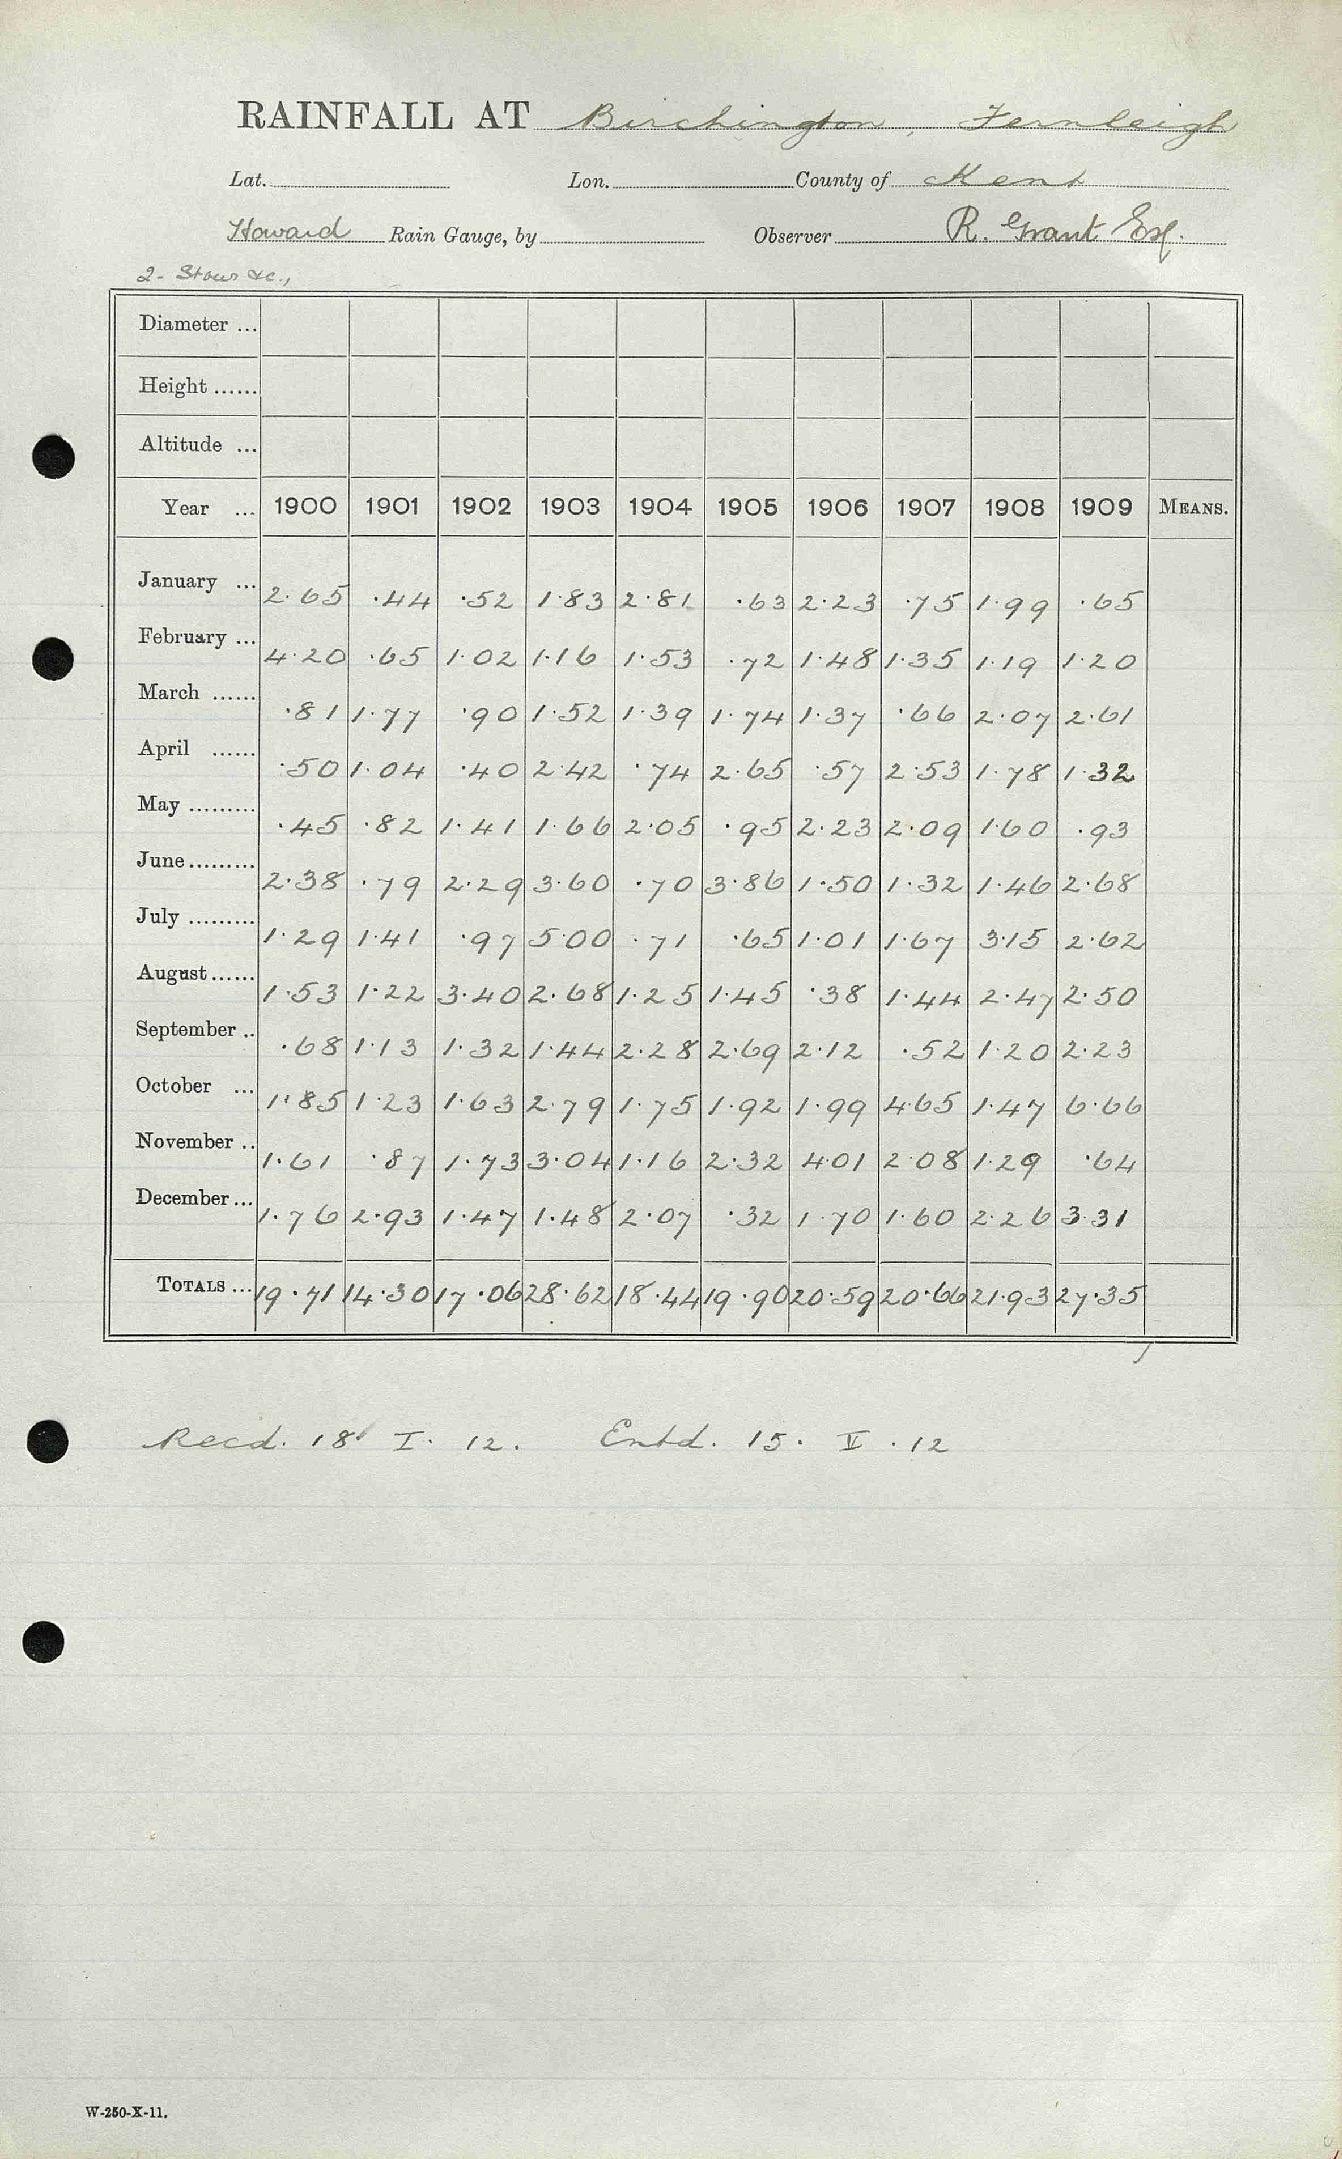 RAINFALL AT Birchington, Fernleigh
Lat. Lon. County of Kent
Howard Rain Gauge, by Observer R. Grant Esq.
2 - Stour &c.,
Diameter ...
Height ......
Altitude ...
Year ... 1900 1901 1902 1903 1904 1905 1906 1907 1908 1909 MEANS.
January ... 2.65 .44 .52 1.83 2.81 .63 2.23 .75 1.99 .65
February ... 4.20 .65 1.02 1.16 1.53 .72 1.48 1.35 1.19 1.20
March ...... .81 1.77 .90 1.52 1.39 1.74 1.37 .66 2.07 2.61
April ...... .50 1.04 .40 2.42 .74 2.65 .57 2.53 1.78 1.32
May ......... .45 .82 1.41 1.66 2.05 .95 2.23 2.09 1.60 .93
June......... 2.38 .79 2.29 3.60 .70 3.86 1.50 1.32 1.46 2.68
July ......... 1.29 1.41 .97 5.00 .71 .65 1.01 1.67 3.15 2.62
August...... 1.53 1.22 3.40 2.68 1.25 1.45 .38 1.44 2.47 2.50
September .. .68 1.13 1.32 1.44 2.28 2.69 2.12 .52 1.20 2.23
October ... 1.85 1.23 1.63 2.79 1.75 1.92 1.99 4.65 1.47 6.66
November .. 1.61 .87 1.73 3.04 1.16 2.32 4.01 2.08 1.29 .64
December ... 1.76 2.93 1.47 1.48 2.07 .32 1.70 1.60 2.26 3.31
TOTALS ... 19.71 14.30 17.06 28.62 18.44 19.90 20.59 20.66 21.93 27.35
Recd. 18 I. 12. Entd. 15. V. 12
W-250-X-11.